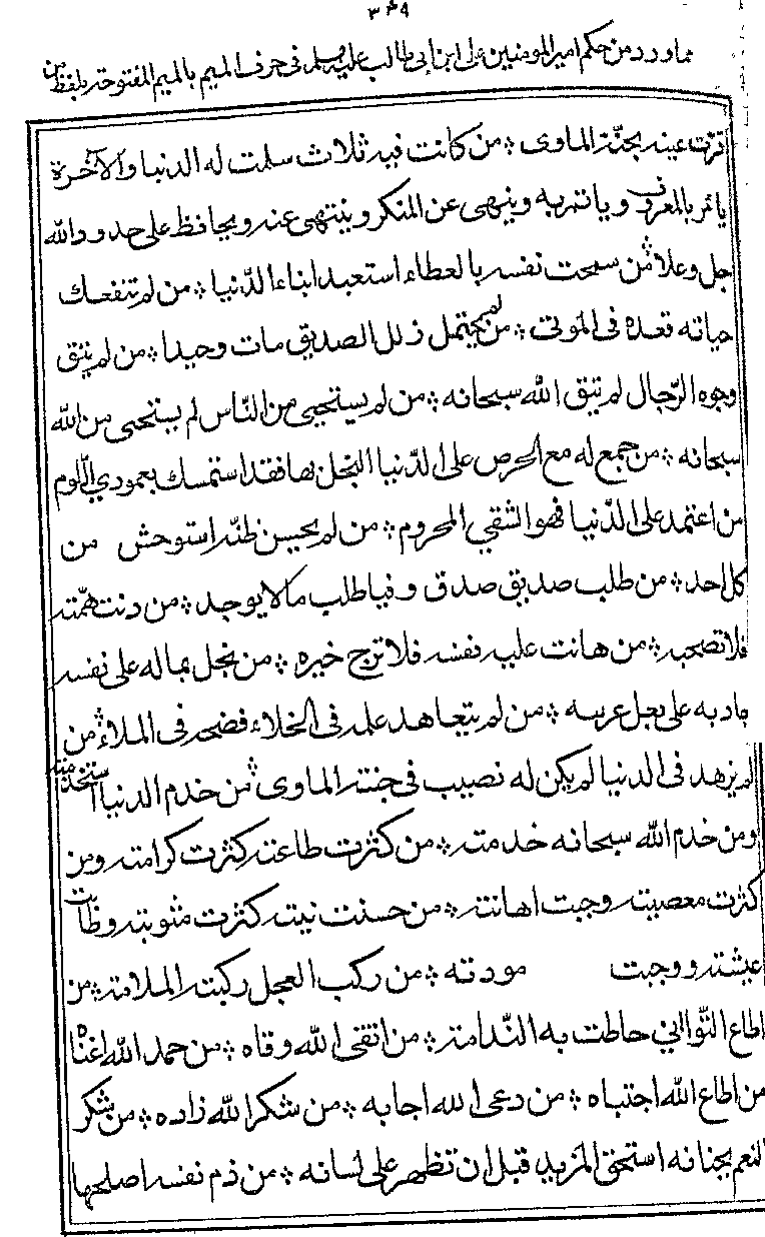 ٣٠٩
مما ورد من حكم امير المومنين على ابن ابى طالب عليه السلام فى حرف الميم بالميم المفتوحة بلفظ من
قرت عينه بجنة الماوى ؞ من كانت فيه ثلاث سلمت له الدنيا والآخرة
يأتمر بالمعروف وياتمر به وينهى عن المنكر وينتهى عنه ويحافظ على حدود الله
جل وعلا ؞ من سمحت نفسه بالعطاء استعبد ابناء الدّنيا ؞ من لم تنفعك
حياته فعده فى الموتى ؞ من لم يحتمل زلل الصديق مات وحيدا ؞ من لم يتق
وجوه الرّجال لم يتق الله سبحانه ؞ من لم يستحيى من النّاس لم يستحى من الله
سبحانه ؞ من جمع له مع الحرص على الدّنيا البخل بها فقد استمسك بعمودي اللّوم
من اعتمد على الدّنيا فهو الشقي المحروم ؞ من لم يحسن ظنّه استوحش من
كل احد ؞ من طلب صديق صدق وفيا طلب مالا يوجد ؞ من دنت همّته
فلا تصحبه ؞ من هانت عليه نفسه فلا ترج خيره ؞ من بخل بماله على نفسه
جاد به على بعل عرسه ؞ من لم يتعاهد علمه فى الخلاء فضحه فى الملاء ؞ من
لم يزهد فى الدنيا لم يكن له نصيب فى جنة الماوى ؞ من خدم الدنيا استخدمته
ومن خدم الله سبحانه خدمته ؞ من كثرت طاعته كثرت كرامته ومن
كثرت معصيته وجبت اهانته ؞ من حسنت نيته كثرت مثوبته وطابت
عيشته ووجبت مودته ؞ من ركب العجل ركبته الملامة ؞ من
اطاع التّوانى حاطت به النّدامة ؞ من اتقى الله وقاه ؞ من حمد الله اغناه
من اطاع الله اجتباه ؞ من دعى الله اجابه ؞ من شكر الله زاده ؞ من شكر
النعم بجنانه استحق المزيد قبل ان تظهر على لسانه ؞ من ذم نفسه اصلحها